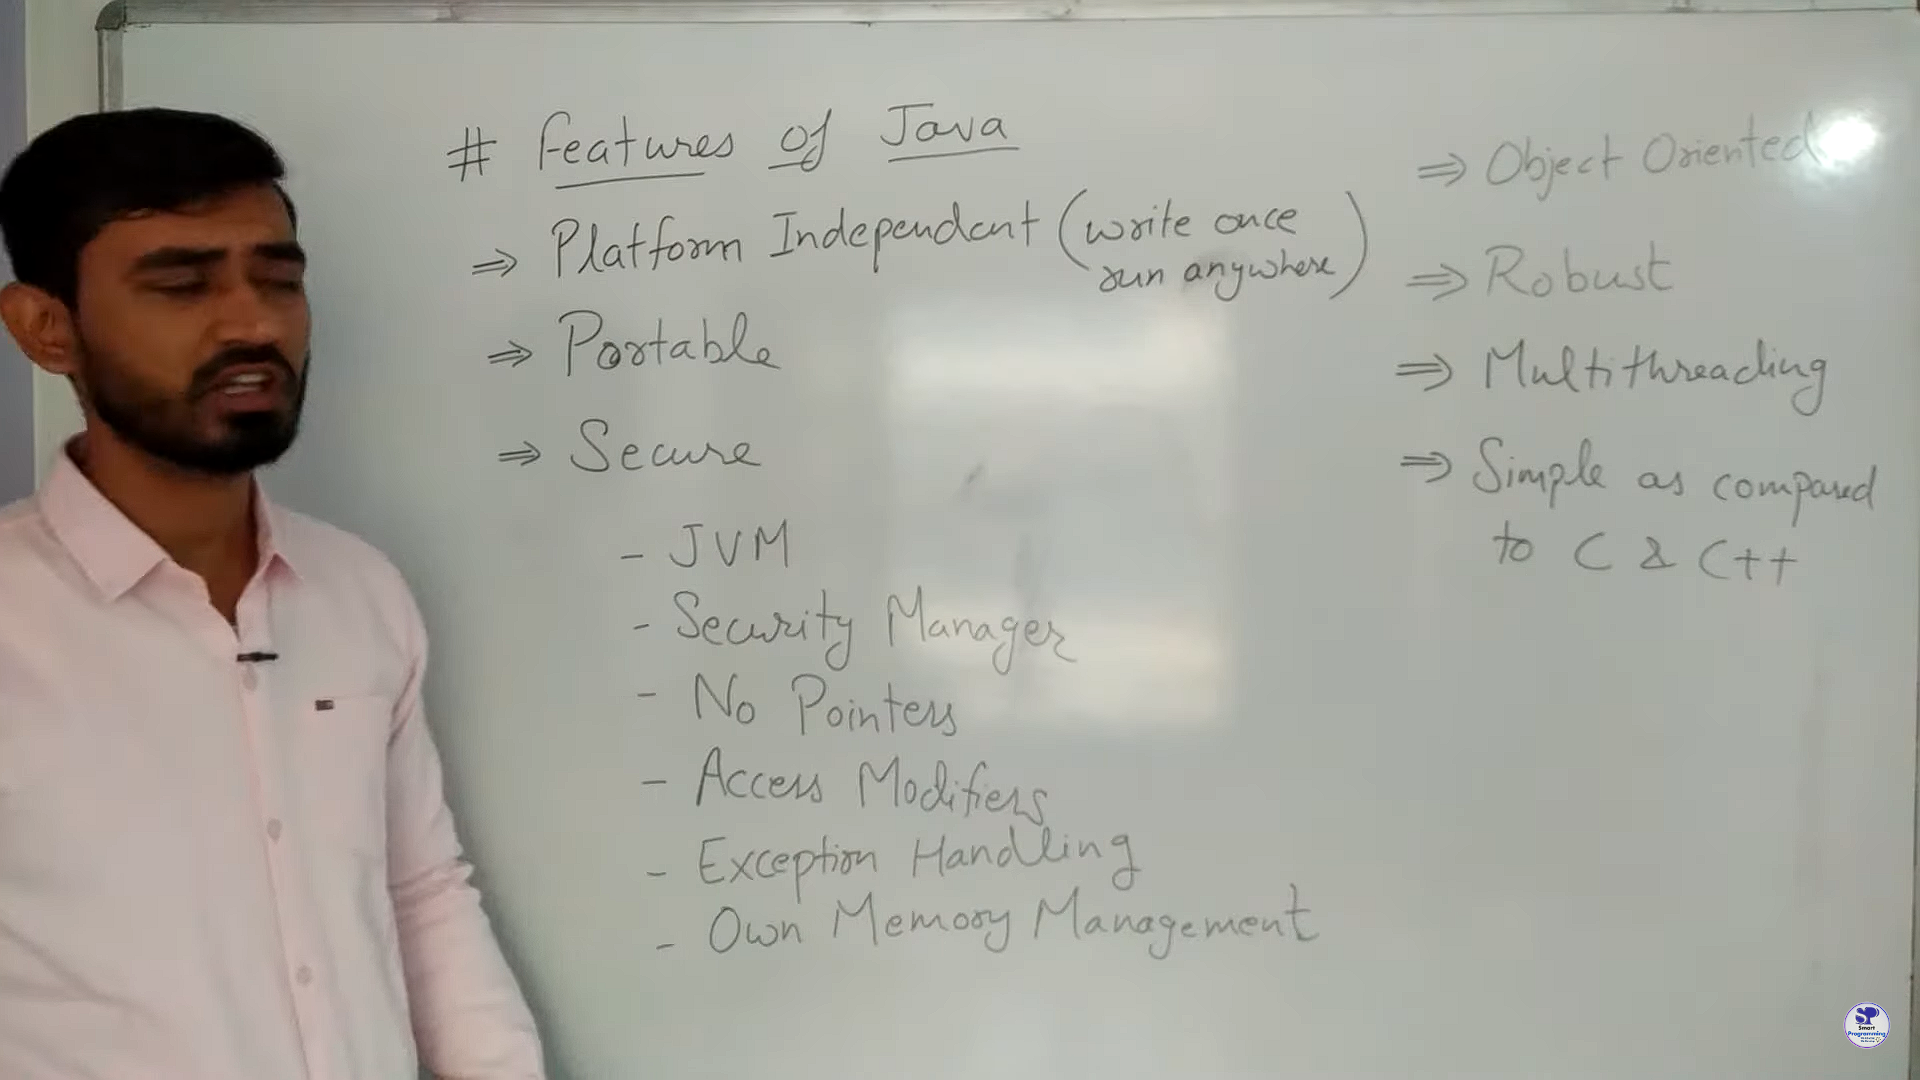 # Features of Java
⇒ Platform Independent (write once
run anywhere)
⇒ Portable
⇒ Secure
- JVM
- Security Manager
- No Pointers
- Access Modifiers
- Exception Handling
- Own Memory Management
⇒ Object Oriented
⇒ Robust
⇒ Multithreading
⇒ Simple as compared
to C & C++
SP
Smart
Programming